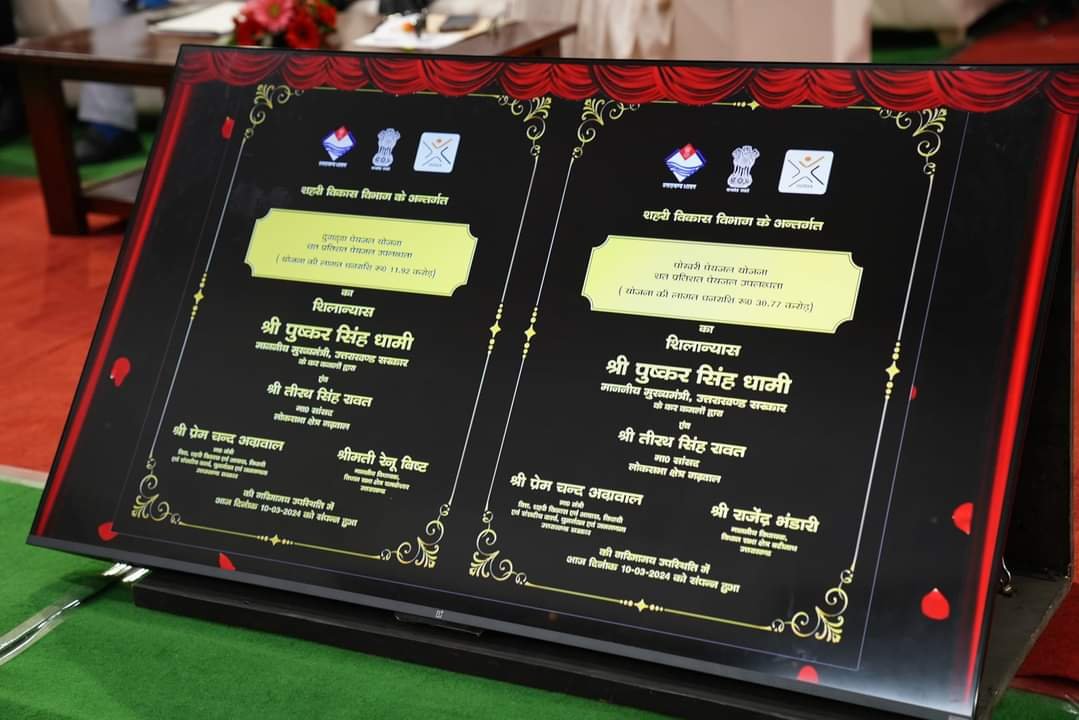 शहरी विकास विभाग के अन्तर्गत
दुगड्डा पेयजल योजना
शत प्रतिशत पेयजल उपलब्धता
( योजना की लागत धनराशि रू0 11.92 करोड़)
का
शिलान्यास
श्री पुष्कर सिंह धामी
माननीय मुख्यमंत्री, उत्तराखण्ड सरकार
के कर कमलों द्वारा
एंव
श्री तीरथ सिंह रावत
मा0 सांसद
लोकसभा क्षेत्र गढ़वाल
श्री प्रेम चन्द अग्रवाल
मा0 मंत्री
वित्त, शहरी विकास एवं आवास, विधायी
एवं संसदीय कार्य, पुनर्गठन एवं जनगणना
उत्तराखण्ड सरकार
श्रीमती रेनू बिष्ट
माननीय विधायक,
विधान सभा क्षेत्र यमकेश्वर
उत्तराखण्ड
की गरिमामय उपस्थिति में
आज दिनांक 10-03-2024 को संपन्न हुआ
शहरी विकास विभाग के अन्तर्गत
पोखरी पेयजल योजना
शत प्रतिशत पेयजल उपलब्धता
( योजना की लागत धनराशि रू0 30.77 करोड़)
का
शिलान्यास
श्री पुष्कर सिंह धामी
माननीय मुख्यमंत्री, उत्तराखण्ड सरकार
के कर कमलों द्वारा
एंव
श्री तीरथ सिंह रावत
मा0 सांसद
लोकसभा क्षेत्र गढ़वाल
श्री प्रेम चन्द अग्रवाल
मा0 मंत्री
वित्त, शहरी विकास एवं आवास, विधायी
एवं संसदीय कार्य, पुनर्गठन एवं जनगणना
उत्तराखण्ड सरकार
श्री राजेंद्र भंडारी
माननीय विधायक,
विधान सभा क्षेत्र बद्रीनाथ
उत्तराखण्ड
की गरिमामय उपस्थिति में
आज दिनांक 10-03-2024 को संपन्न हुआ